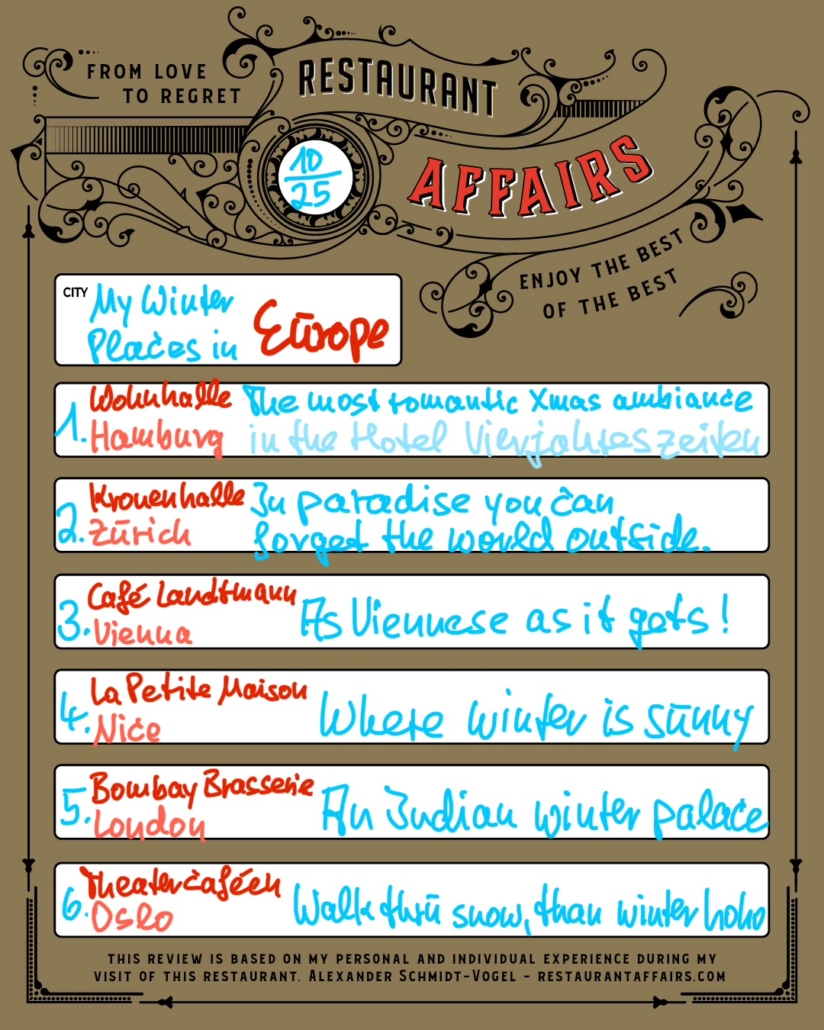 FROM LOVE
TO REGRET
RESTAURANT
AFFAIRS
10
25
ENJOY THE BEST
OF THE BEST
CITY
My Winter
Places in Europe
1. Wohnhalle The most romantic Xmas ambiance
Hamburg in the Hotel Vierjahreszeiten
2. Kronenhalle In paradise you can
Zürich forget the world outside.
3. Café Landtmann As Viennese as it gets!
Vienna
4. La Petite Maison Where winter is sunny
Nice
5. Bombay Brasserie An Indian winter palace
London
6. Theatercaféen Walk thru snow, than winter hoho
Oslo
THIS REVIEW IS BASED ON MY PERSONAL AND INDIVIDUAL EXPERIENCE DURING MY
VISIT OF THIS RESTAURANT. ALEXANDER SCHMIDT-VOGEL - RESTAURANTAFFAIRS.COM